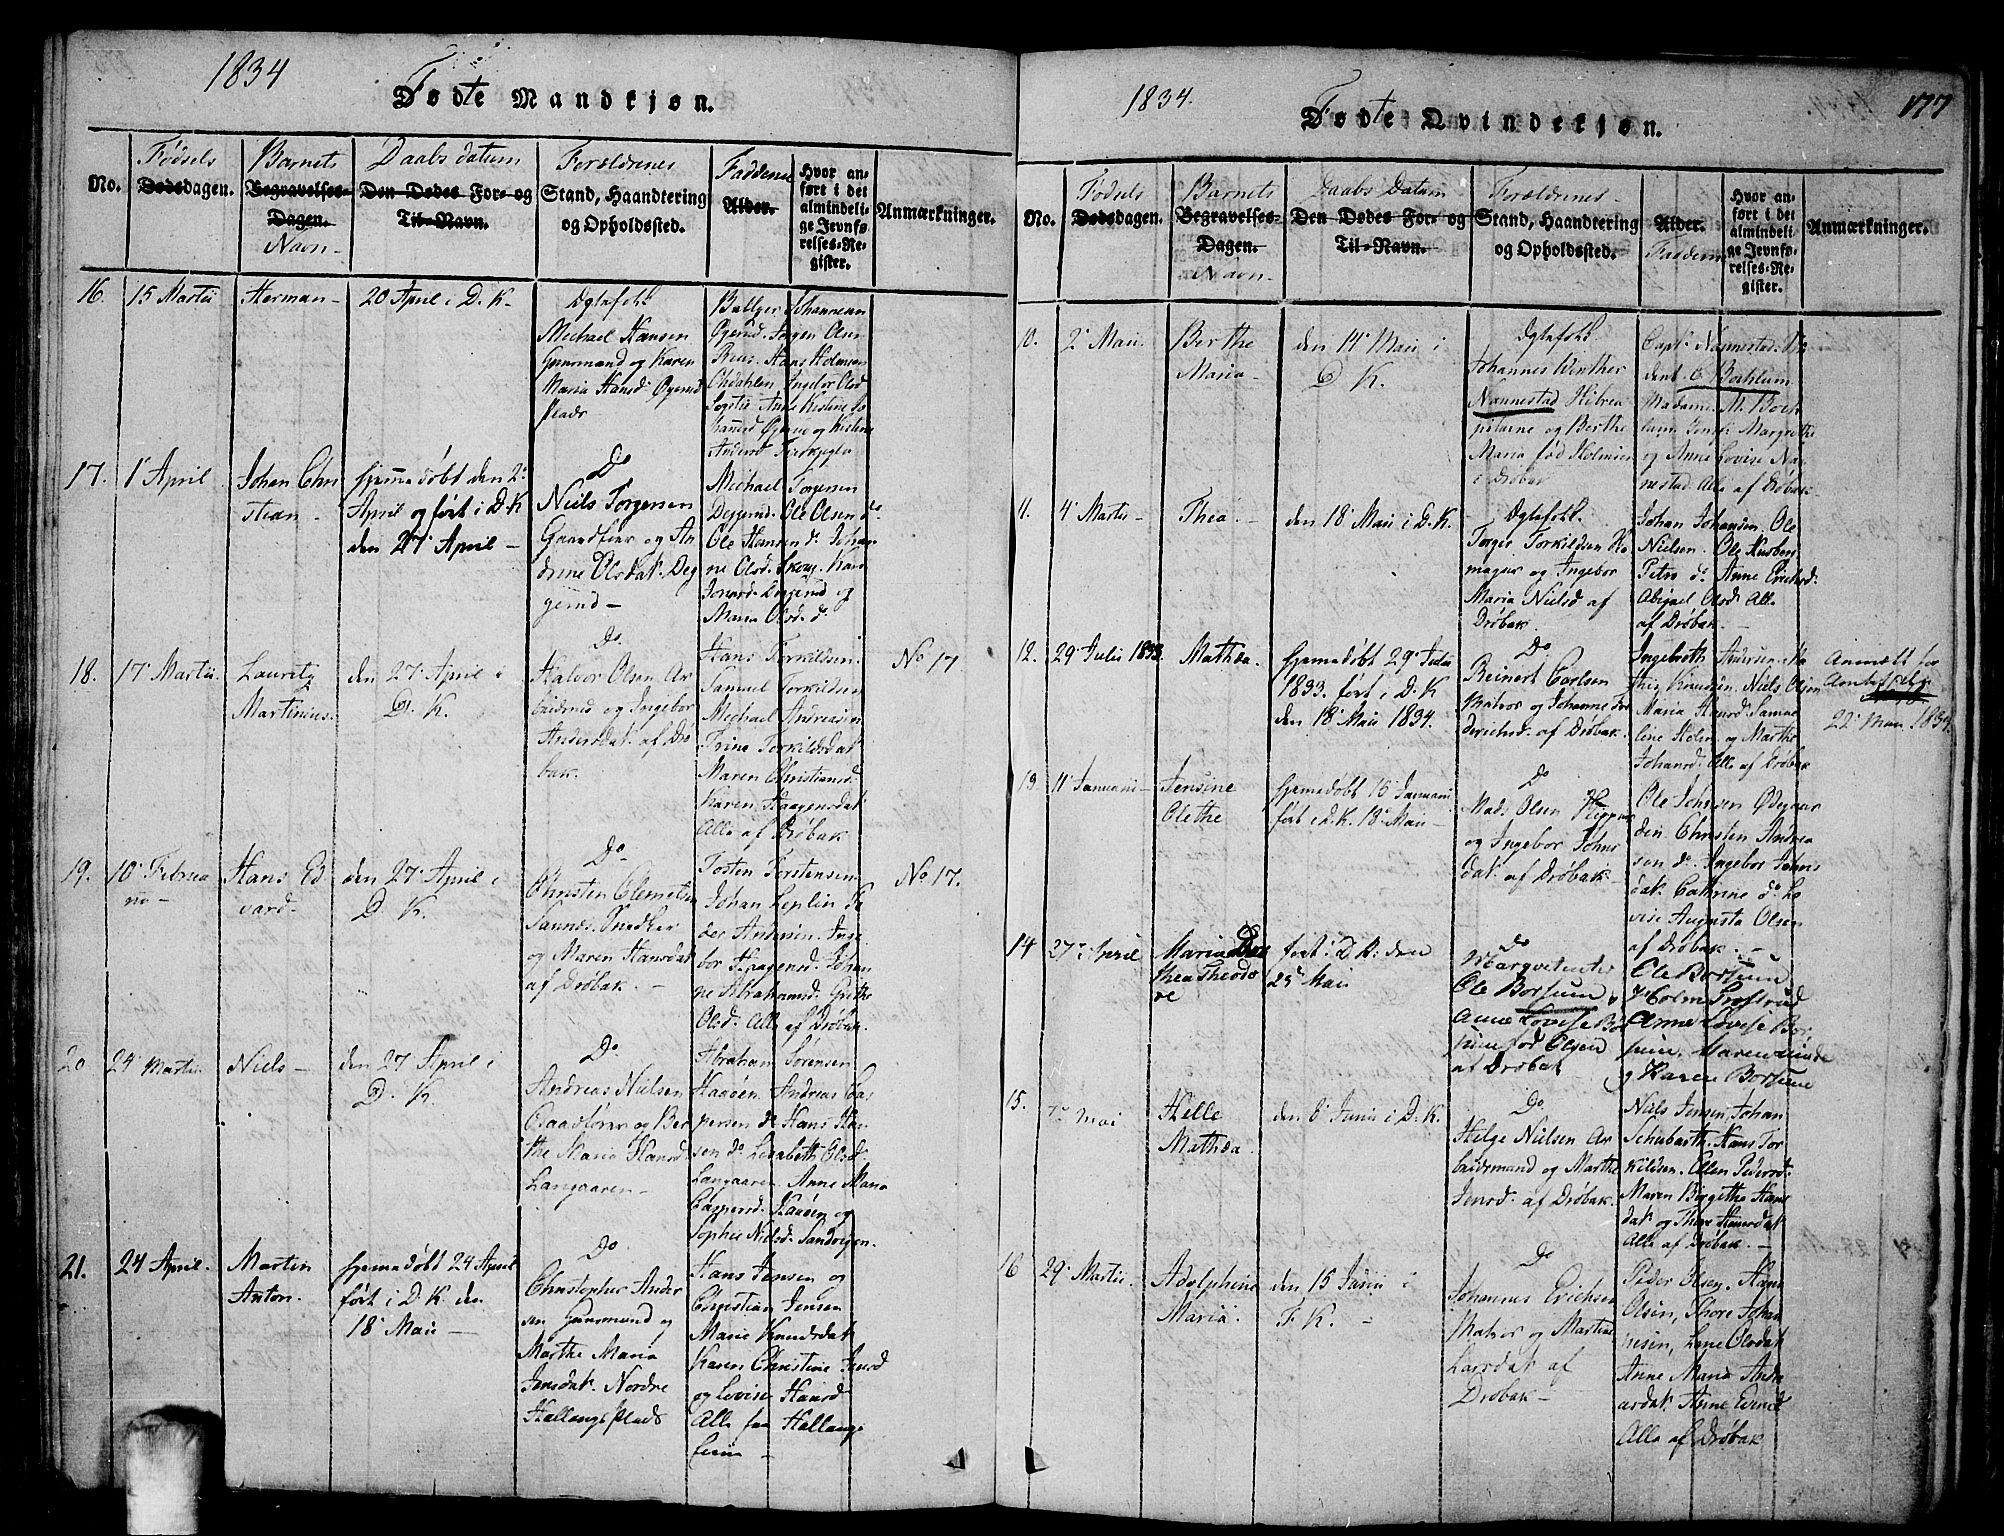 1834
Fødte Mandkjøn.
No.
Fødsels
Dødsdagen.
Barnets
Begravelses-
Dagen.
Navn-
Daabs datum
Den Dødes For- og
Til-Navn.
Forældrenes
Stand, Haandtering
og Opholdssted.
Faddene
Alder.
Hvor an-
ført i det
almindeli-
ge Jevnfø-
relses-Re-
gister.
Anmærkninger.
16.
15 Martii
Herman-
20 April i D. K-
Ægtefolk
Michael Hansen
og Karen
Maria Hansd.
Plads
Johannesen
Jørgen Olsen
Hans
Ingebor Olsd
Anne Kistine
17.
1 April
Johan Chri
stian-
hjemmedøbt den 2
April og ført i D. K
den 27 April-
Do
Niels Torgersen
og An
drine Olsdat. Deg
gerud-
Michael Torgersen
Deggerud. Ole Olsen do.
Ole Hansen do. Johan
ne Olsd. Skoug. Kari
Deggerud og
Maria Olsd. do
18.
17 Martii.
Lauritz
Martinius.
den 27 April i
D. K.
Do.
Halvor Olsen Ar
beidsmd og Ingebor
Andersdat. af Drø
bak.
Hans Torkildsen.
Samuel Torkildsen
Michael Andreasen
Trine Torkildsdat
Maren Christiansd.
Karen Haagensdat
Alle af Drøbak
No 17
19.
10 Februa
rii-
Hans Ed
vard-
den 27 April i
D. K.
Do
Christen Clemetsen
Snedker
og Maren Hansdat
af Drøbak. -
Tosten Torstensen.
Johan Zeplin Pe
der Andersen. Inge
bor Haagensd. Johan
ne Abrahamsd. Grethe
Olsd. Alle af Drøbak.
No 17.
20
24 Martii
Niels-
den 27 April i
D. K.
Do
Andreas Nielsen
og Ber
the Maria Hansd.
Langaaren-
Abraham Sørensen
Haaøen. Andreas Cas
persen do Hans Han
sen do Lisabeth Olsd.
Langaaren. Anne Maria
Caspersd. Haaøen og
Sophie Nielsd. Sandvigen.
21.
24 April.
Martin
Anton.
hjemmedøbt 24 April
ført i D. K. den
18 Maii-
Do
Christopher Ander
sen Huusmand og
Marthe Maria
Jensdat. Nordre
Hallangs Plads
Hans Jensen og
Christian Jensen
Marie Knudsdat
Karen Christine Jensd
og Lovise Hansd
Alle fra Hallangs
1834.
Fødte Qvindekjøn.
177
No.
Fødsels
Dødsdagen.
Barnets
Begravelses-
Dagen.
Navn-
Daabs Datum
Den Dødes For- og
Til-Navn.
Forældrenes-
Stand, Haandtering
og Opholdssted.
Alder.
Faddern
Hvor an-
ført i det
almindeli-
ge Jevnfø-
relses-Re-
gister.
Anmærkninger.
10.
2 Maii.
Berthe
Maria-
den 14 Maii i
D. K.
Ægtefolk
Johannes Winther
Nannestad
og Berthe
Maria fød
i Drøbak
Capt. Nannestad.
Madame. M.
Margrethe
og Anne Lovise Nan
nestad. Alle af Drøbak-
11.
4 Martii-
Thea. -
den 18 Maii i D. K.
Ægtefolk.
Torger Torkildsen
og Ingebor
Maria Nielsd af
Drøbak.
Johan Johansen. Ole
Nielsen. Ole Husberg
Petro do. Anne Erichsd.
Abigael Olsd. Alle
af Drøbak-
12.
29 Julii 1833.
Mathea.
hjemmedøbt 29 Julii
1833. ført i D. K
den 18 Maii 1834.
Do
Reinert Carlsen
Matros og Johanne
af Drøbak.
Ingebreth Andersen. Ma
this Knudsen. Niels Olsen
Maria Hansd. Samue
line Holen og Marthe
Johansd. Alle af Drøbak
Anmeldt for
22 Maii 1834.
13
11 Januarii-
Jensine
Olethe
hjemmedøbt 15 Januarii
ført i D. K. 18 Maii-
Do
Mads Olsen
og Ingebor Johns
dat. af Drøbak-
Ole Johnsen Ødegaar
den Christen Andrea
sen do. Ingebor Johns
dat. Cathrine do. Lo
vise Augusta Olsen
af Drøbak. -
14
27 April
Maria Doro
thea Theodo
re
ført i D. K. den
25 Maii
Do
Marqvetenter
Ole Borsum
Anne Lovise Bor
sum fød Olsen
af Drøbak
Ole Borsum
Holm
Anne Lovise Bor
sum.
og Karen Borsum
15.
Mai
Helle
Mathea.
den 8 Junii i D. K.
Do
Helge Nielsen Ar
beidsmand og Marthe
Jensd. af Drøbak.
Niels Jensen. Johan
Schubarth. Hans Tor
kildsen. Ellen Pedersd.
Maren Birgethe Hans
dat og Thore Hansdat
Alle af Drøbak. -
16
29 Martii.
Adolphine
Maria.
den 15 Junii i
F. K. -
Do
Johannes Erichsen
Matros og Martine
Larsdat af
Drøbak-
Peder Olsen, Hans
Olsen, Thore Johan
nesen, Lene Olsdat
Anne Maria Andre
asdat Anne
Alle af Drøbak